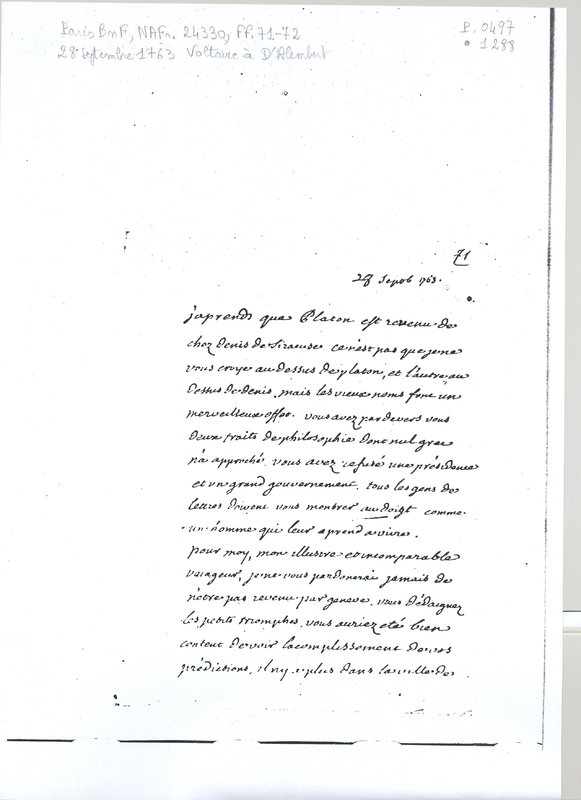 Paris BnF, NAFr. 24330, ff. 71-72
28 septembre 1763 Voltaire à D'Alembert
P. 0497
1288
71
28 Sepb 1763.
j'aprends que Platon est revenu de
chez denis de Siracuse ce n'est pas que je ne
vous croye au dessus de platon, et l'autre au
dessus de denis, mais les vieux noms font un
merveilleux effet. vous avez par devers vous
deux traits de philosophie dont nul grec
n'a approché. vous avez refusé une présidence
et un grand gouvernement. tous les gens de
lettres doivent vous montrer au doigt comme
un homme qui leur aprend a vivre.
pour moy, mon illustre et incomparable
voiageur, je ne vous pardonerai jamais de
n'etre pas revenu par geneve. vous dédaignez
les petits triomphes. vous auriez été bien
content de voir lacomplissement de vos
prédictions. il ny a plus dans la ville de